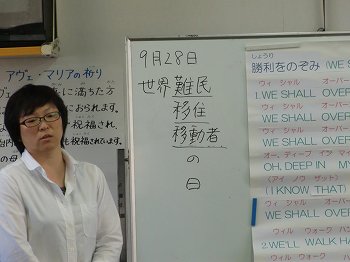 アヴェ・マリアの祈り
に満ちた方
におられます。
祝福され、
も祝福されています。
の母
9月28日
世界難民
移住
移動者
の
日
しょうり
勝利をのぞみ (WE S
ウィ シャル オーバー
1.WE SHALL OVER
ウィ シャル オーバー
WE SHALL OVER
ウィ シャル オーバー
WE SHALL OVER
オー、ディープ イン マ
OH, DEEP IN MY
(アイ ノウ ザット)
(I KNOW THAT)
ウィ シャル オーバー
WE SHALL OVER
ウィル ウォーク ハン
2.WE'LL WALK HA
ウィル ウォーク ハン